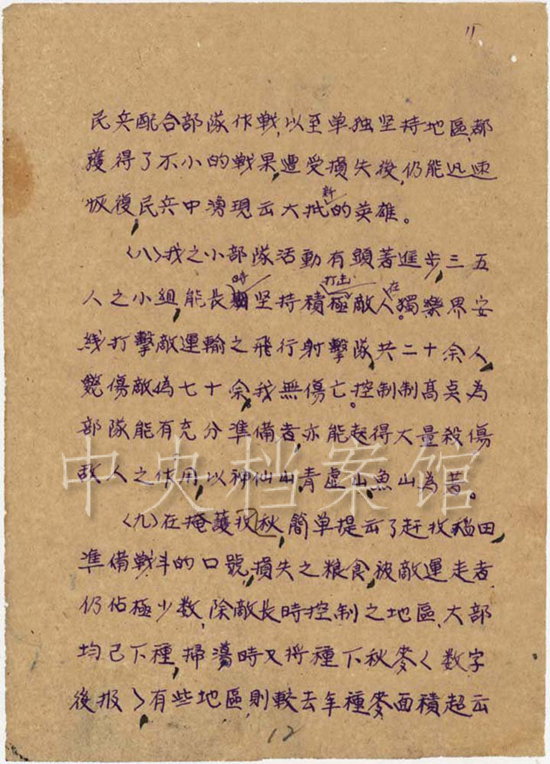 11
民兵配合部隊作战，以至单独坚持地區，都
獲得了不小的战果，遭受損失後，仍能迅速
恢復，民兵中湧現云大批新的英雄。
〈八〉我之小部隊活動有顕著進步，三五
人之小組，能長時坚持積極打击敵人。在獨樂界安
线打擊敵運輸之飛行射擊隊，共二十余人，
斃傷敵偽七十余，我無傷亡。控制制高点為
部隊能有充分準備者，亦能起得大量殺傷
敌人之作用，以神仙山，青虚山，魚山為著。
〈九〉在掩護秋收，简单提云了赶收稻田，
準備戰斗的口號，損失之粮食，被敵運走者
仍佔極少数，除敵長時控制之地區，大部
均已下種，掃蕩時又将種下秋麥〈数字
後报〉有些地區，則較去年種麥面積超云
12
中央档案馆